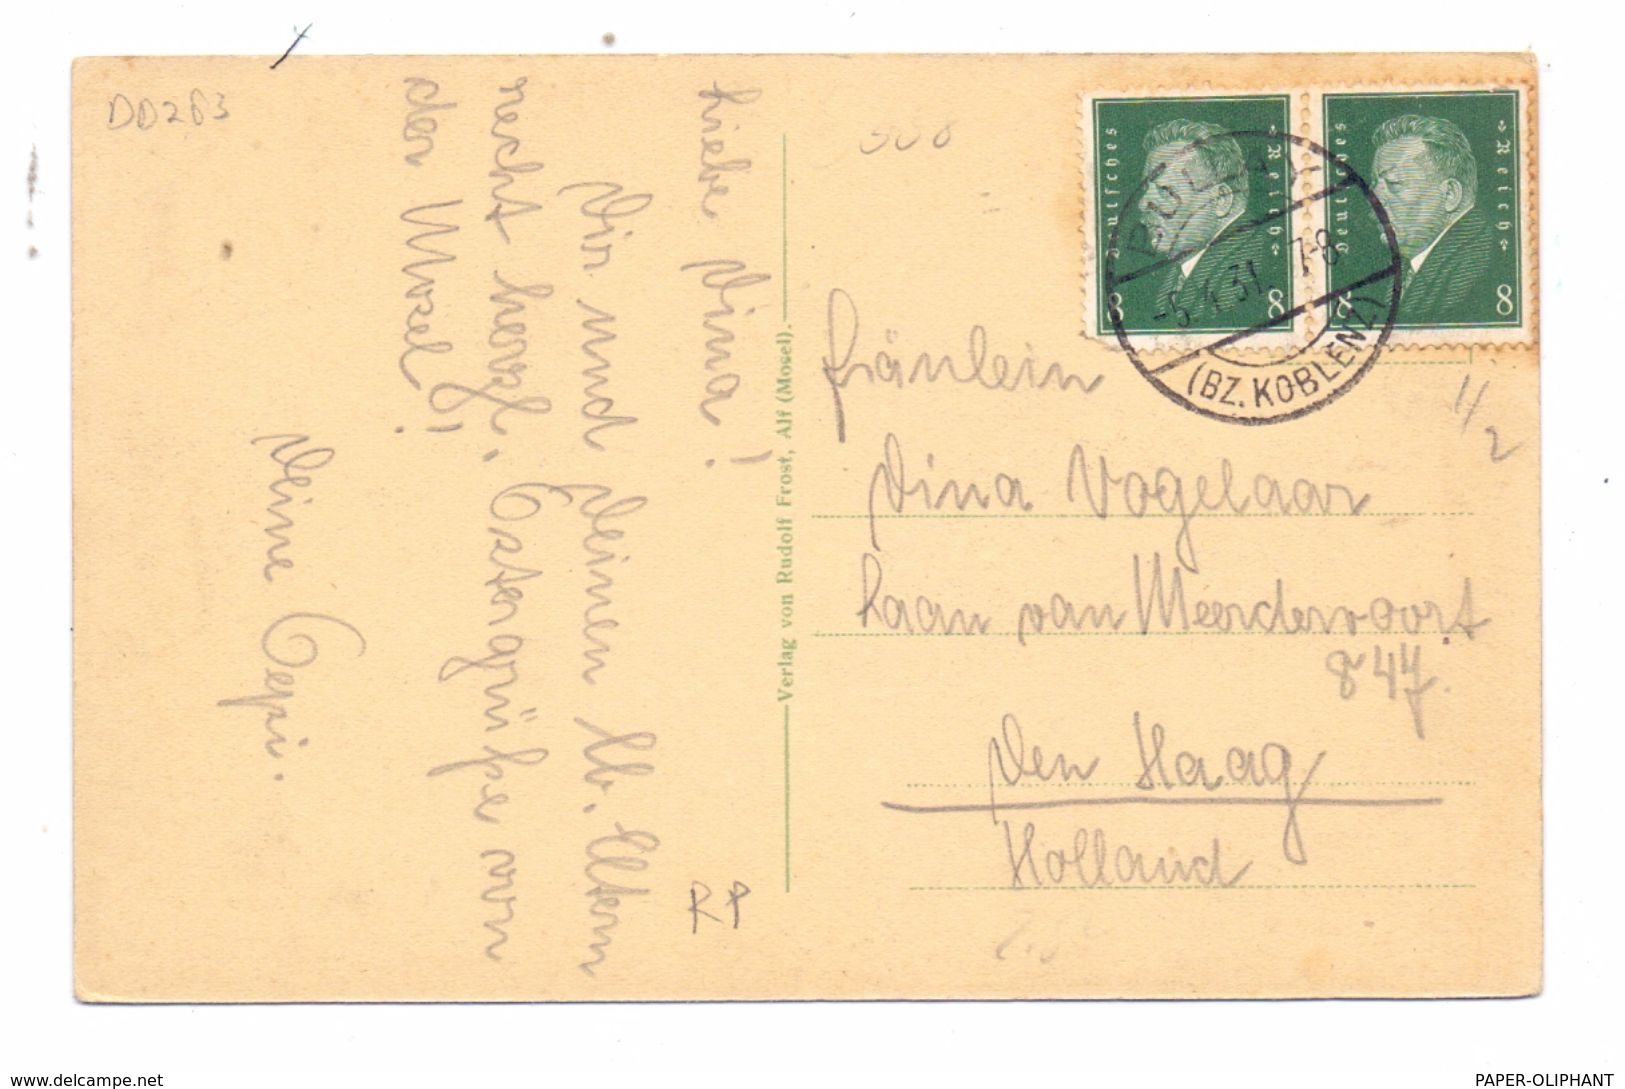 DD263
Liebe Dina!
Dir und Deinen lb. Eltern
recht herzl. Ostergrüsse von
der Mosel!
Deine Pepi.
Verlag von Rudolf Frost, Alf (Mosel).
Deutsches Reich
8
Deutsches Reich
8
BULLAY
-5.4.31. 7-8
(BZ. KOBLENZ)
Fräulein
Dina Vogelaar
Laan van Meerdervoort
847.
Den Haag
Holland
1/2
www.delcampe.net
PAPER-OLIPHANT